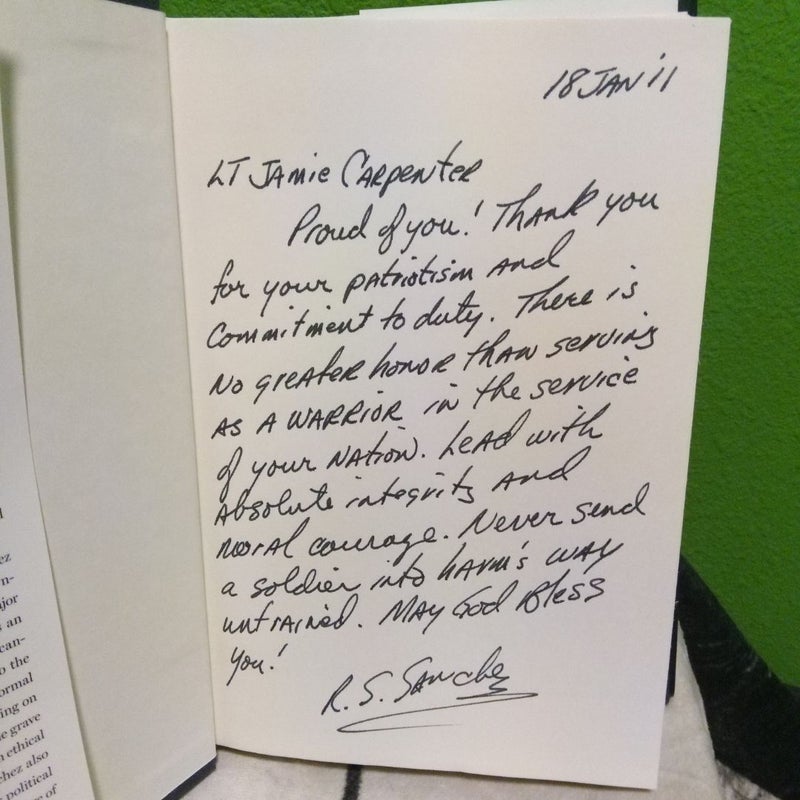 18 JAN '11
LT Jamie Carpenter
Proud of you! Thank you
for your patriotism and
commitment to duty. There is
No greater honor than serving
as a warrior in the service
of your nation. Lead with
absolute integrity and
moral courage. Never send
a soldier into harm's way
untrained. May God Bless
you!
R. S. Sanchez
ez
n-
jor
s an
can-
o the
ormal
ing on
e grave
n ethical
hez also
political
ce of